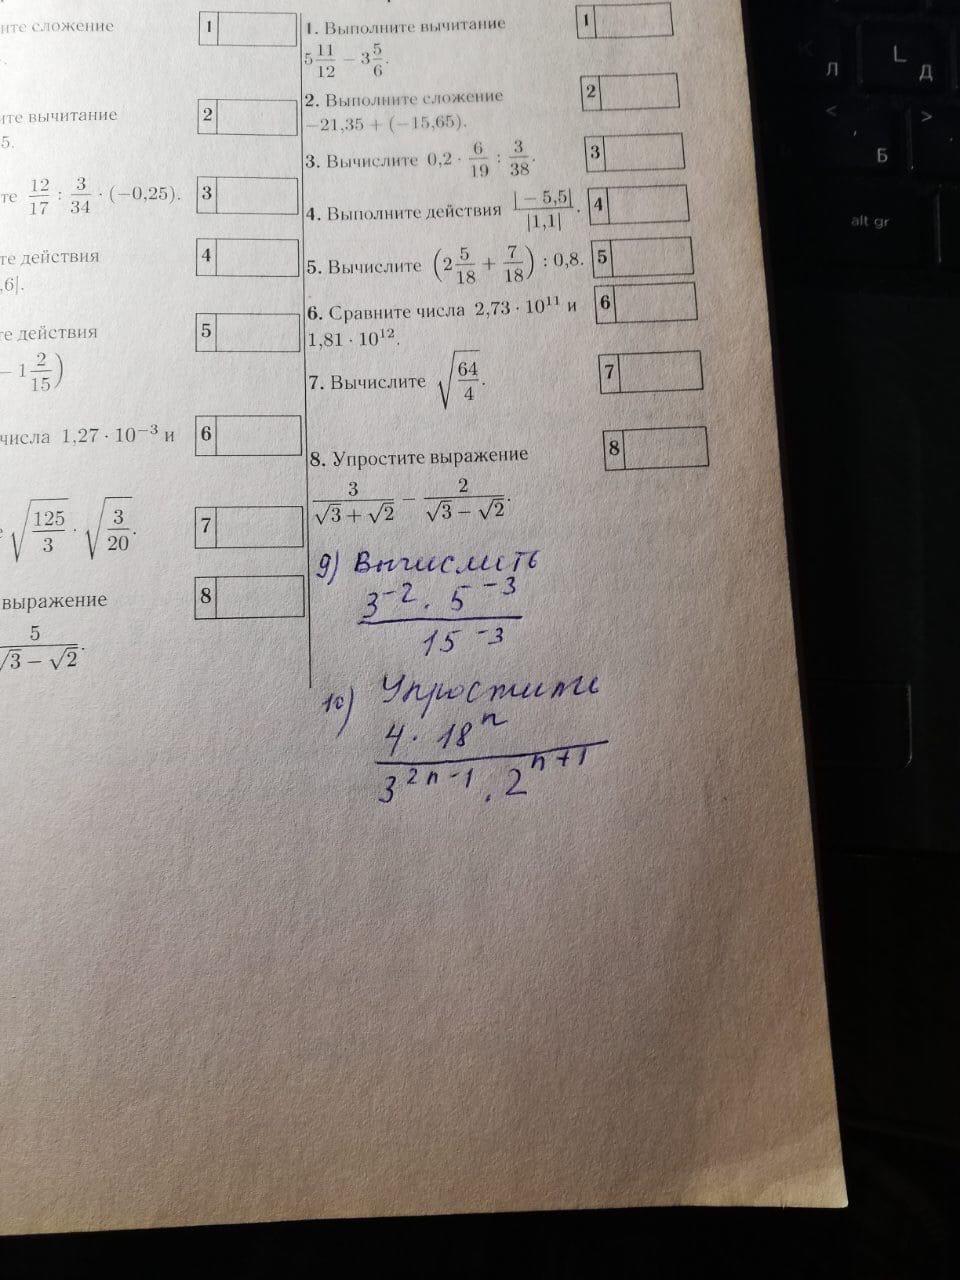 ите сложение
1
ите вычитание
5.
2
те 12/17 : 3/34 · (−0,25).
3
те действия
,6|.
4
те действия
− 1 2/15)
5
числа 1,27 · 10⁻³ и
6
√(125/3) · √(3/20).
7
выражение
8
5/(√3 − √2).
1. Выполните вычитание
1
5 11/12 − 3 5/6.
2. Выполните сложение
2
−21,35 + (−15,65).
3. Вычислите 0,2 · 6/19 : 3/38.
3
4. Выполните действия |−5,5|/|1,1|.
4
5. Вычислите (2 5/18 + 7/18) : 0,8.
5
6. Сравните числа 2,73 · 10¹¹ и
6
1,81 · 10¹².
7. Вычислите √(64/4).
7
8. Упростите выражение
8
3/(√3 + √2) − 2/(√3 − √2).
9) Вычислить
3⁻² · 5⁻³
15⁻³
10) Упростите
4 · 18ⁿ
3²ⁿ⁻¹ · 2ⁿ⁺¹
Л
L
Д
<
>
Б
alt gr